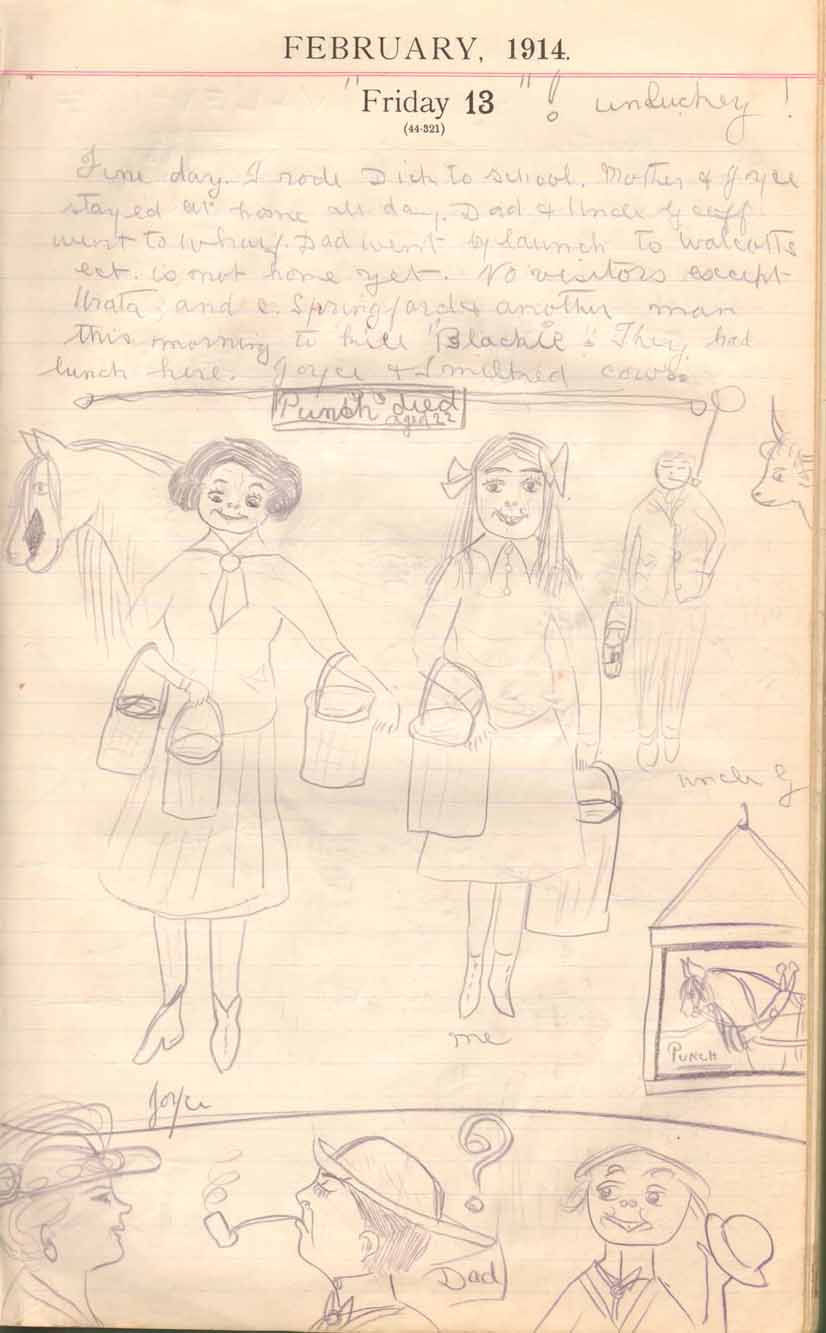 FEBRUARY, 1914.
"Friday 13"! unluckey!
(44-321)
Fine day. I rode Dick to school. Mother & Joyce
stayed at home all day. Dad & Uncle Geoff
went to wharf. Dad went by launch to Walcotts
ect. is not home yet. No visitors except
Urata; and e. Springford & another man
this morning to kill "Blackie". They had
lunch here. Joyce & I milked cows.
"Punch" died
aged 22
uncle G
me
PUNCH
Joyce
?
Dad